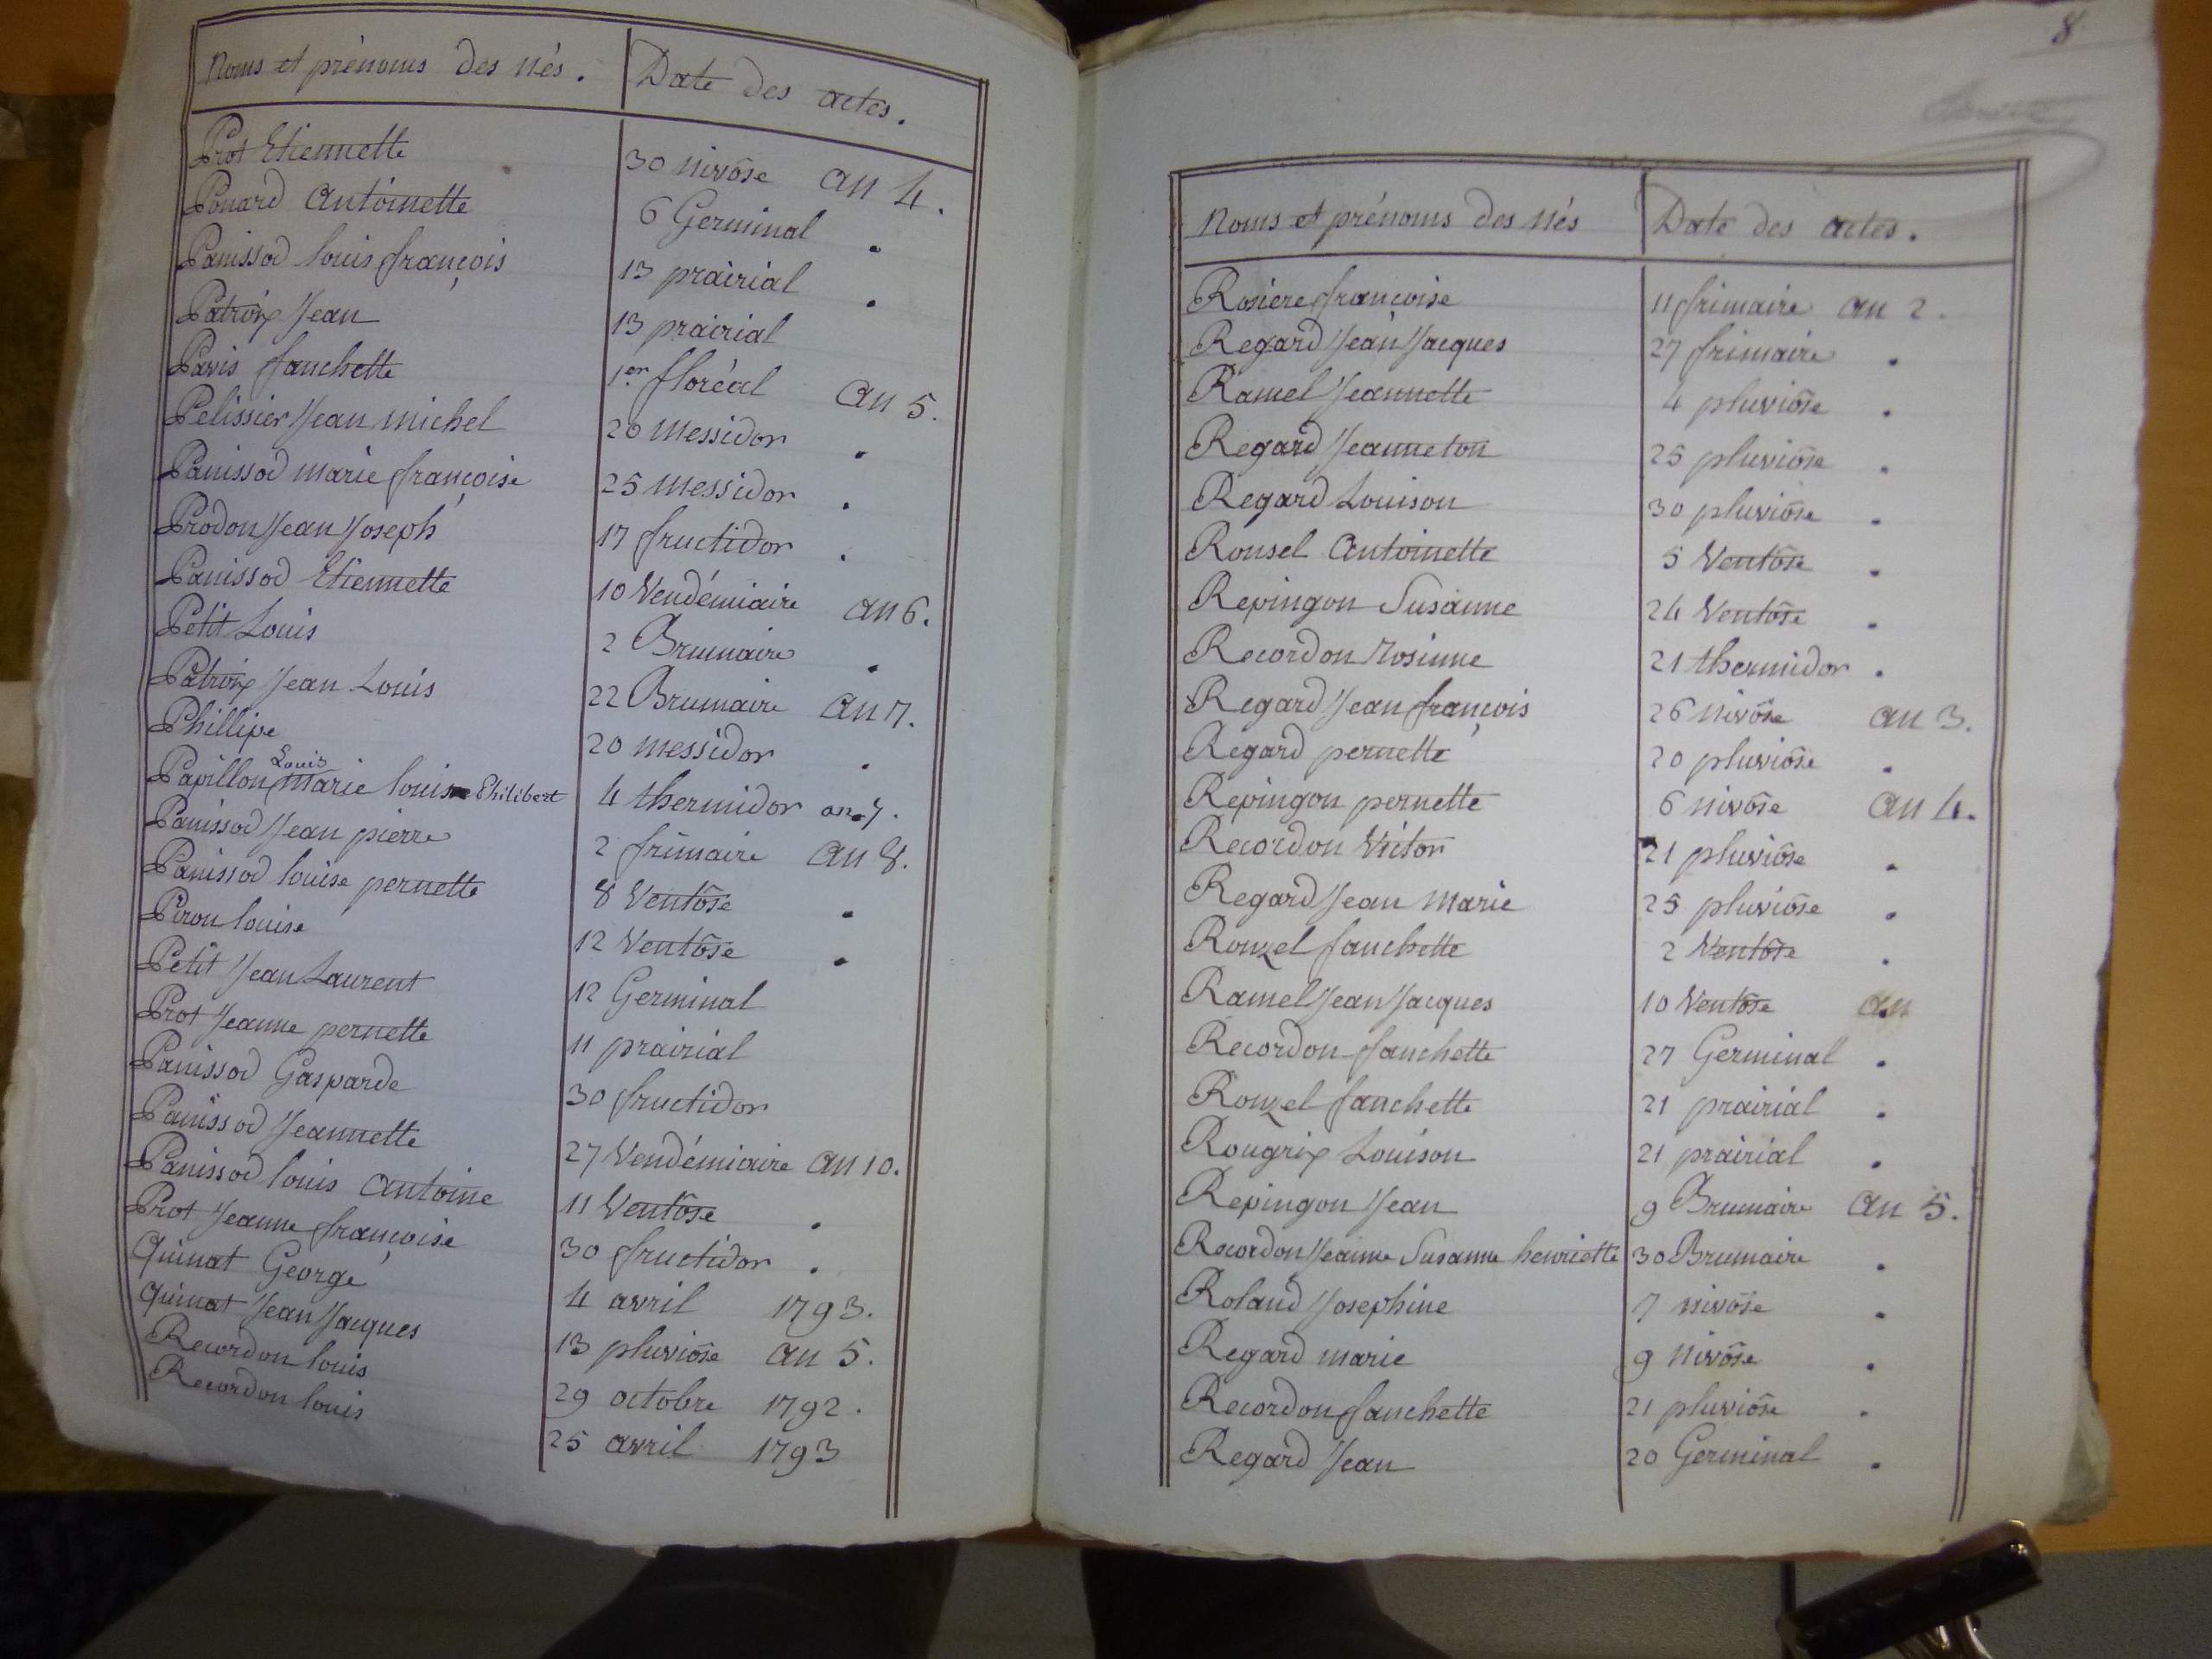 Noms et prénoms des nés. Date des actes.
Prot Etiennette 30 nivôse an 4.
Ponard Antoinette 6 Germinal .
Panissod louis françois 13 prairial .
Patroix Jean 13 prairial
Pavis fanchette 1er floréal an 5.
Pelissier Jean michel 20 messidor .
Panissod marie françoise 25 messidor .
Prodon Jean Joseph 17 fructidor .
Panissod Etiennette 10 Vendémiaire an 6.
Petit Louis 2 Brumaire .
Patroix Jean Louis 22 Brumaire an 7.
Phillipe 20 messidor .
Louis
Papillon marie louis Philibert 4 thermidor an 7.
Panissod Jean pierre 2 frimaire an 8.
Panissod louise pernette 8 Ventôse .
Piron louise 12 Ventôse .
Petit Jean Laurent 12 Germinal
Prot Jeanne pernette 11 prairial
Panissod Gasparde 30 fructidor
Panissod Jeannette 27 Vendémiaire an 10.
Panissod louis Antoine 11 Ventôse .
Prot Jeanne françoise 30 fructidor .
Quinat George 4 avril 1793.
Quinat Jean Jacques 13 pluviôse an 5.
Recordon louis 29 octobre 1792.
Recordon louis 25 avril 1793
8
Noms et prénoms des nés Date des actes.
Rosiere françoise 11 frimaire an 2.
Regard Jean Jacques 27 frimaire .
Ramel Jeannette 4 pluviôse .
Regard Jeanneton 25 pluviôse .
Regard Louison 30 pluviôse .
Ronsel Antoinette 5 Ventôse .
Repingon Susanne 24 Ventôse .
Recordon rosinne 21 thermidor .
Regard Jean françois 26 nivôse an 3.
Regard pernette 20 pluviôse .
Repingon pernette 6 nivôse an 4.
Recordon Victor 21 pluviôse .
Regard Jean Marie 25 pluviôse .
Ronzel fanchette 2 Ventôse .
Ramel Jean Jacques 10 Ventôse an
Recordon fanchette 27 Germinal .
Ronzel fanchette 21 prairial .
Rougrix Louison 21 prairial .
Repingon Jean 9 Brumaire an 5.
Recordon Jeanne Susanne henriette 30 Brumaire .
Roland Josephine 7 nivôse .
Regard marie 9 nivôse .
Recordon fanchette 21 pluviôse .
Regard Jean 20 Germinal .